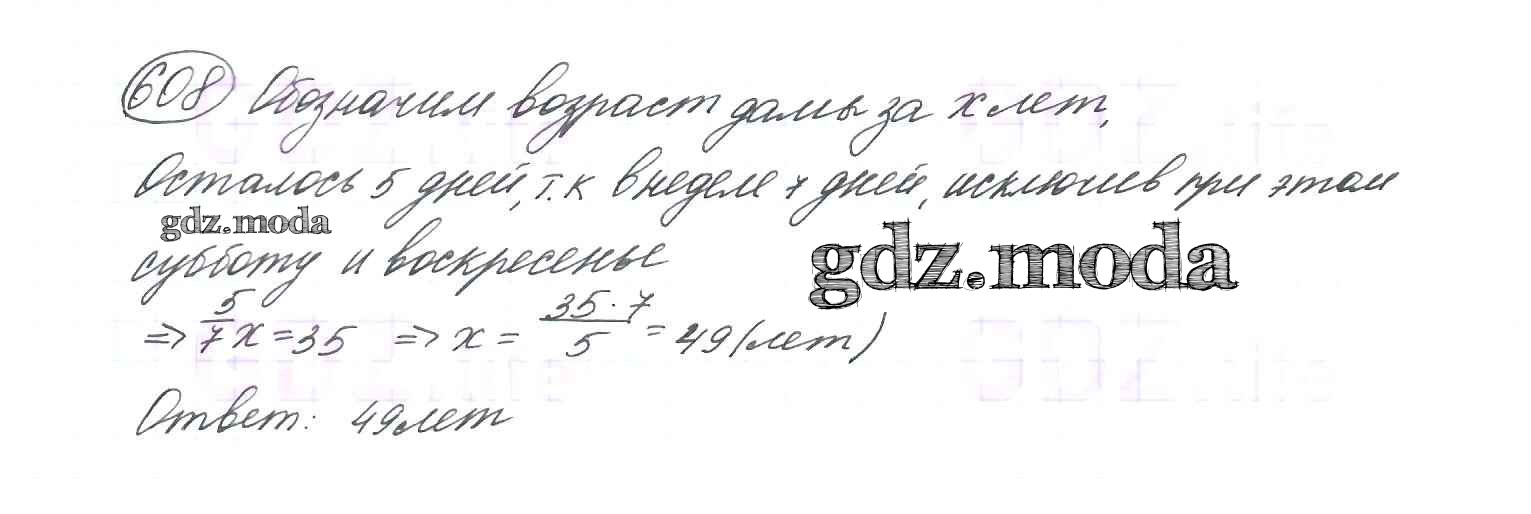 608 Обозначим возраст дамы за x лет,
Осталось 5 дней, т.к в неделе 7 дней, исключив при этом
gdz.moda
субботу и воскресенье
gdz.moda
=> 5/7 x = 35 => x = 35·7/5 = 49 (лет)
Ответ: 49 лет